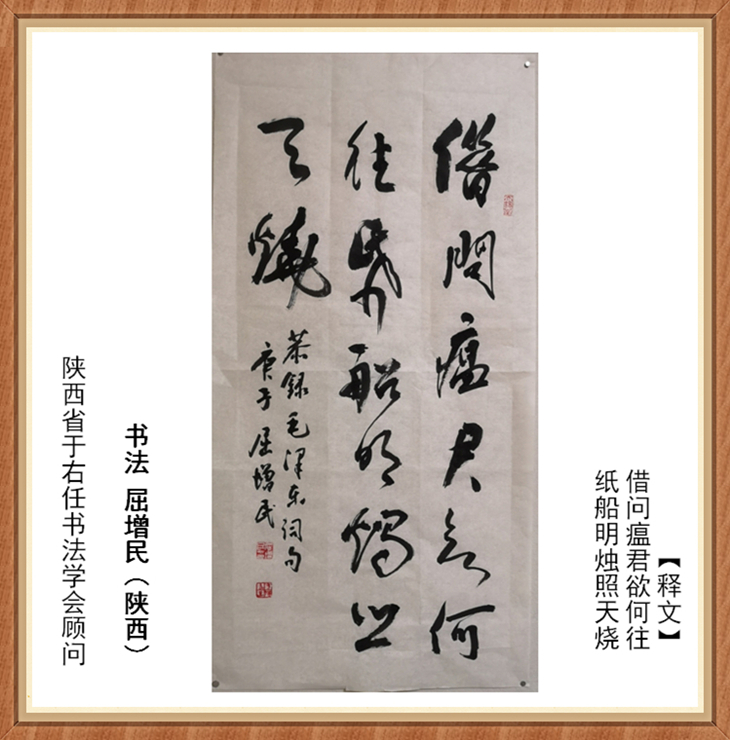 【释文】
借问瘟君欲何往
纸船明烛照天烧
借問瘟君欲何
往紙船明燭照
天燒
恭録毛澤东词句
庚子 屈增民
书法 屈增民（陕西）
陕西省于右任书法学会顾问